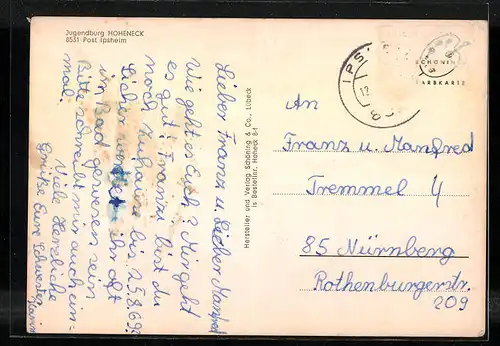 Jugendburg HOHENECK
8531 Post Ipsheim
Lieber Franz u. Lieber Manfred
Wie geht es Euch? Mir geht
es gut! Franz bist du
noch Zuhause bis 25.8.69?
Sicher werdet ihr oft
im Bad gewesen sein
Bitte schreibt mir auch ein-
mal.
Viele Herzliche
Grüße Eure Schwester
Hersteller und Verlag Schöning & Co., Lübeck
Is Bestellnr. Hoheck 84
SCHÖNING
FARBKARTE
IPS
An
Franz u. Manfred
Tremmel
85 Nürnberg
Rothenburgerstr.
209